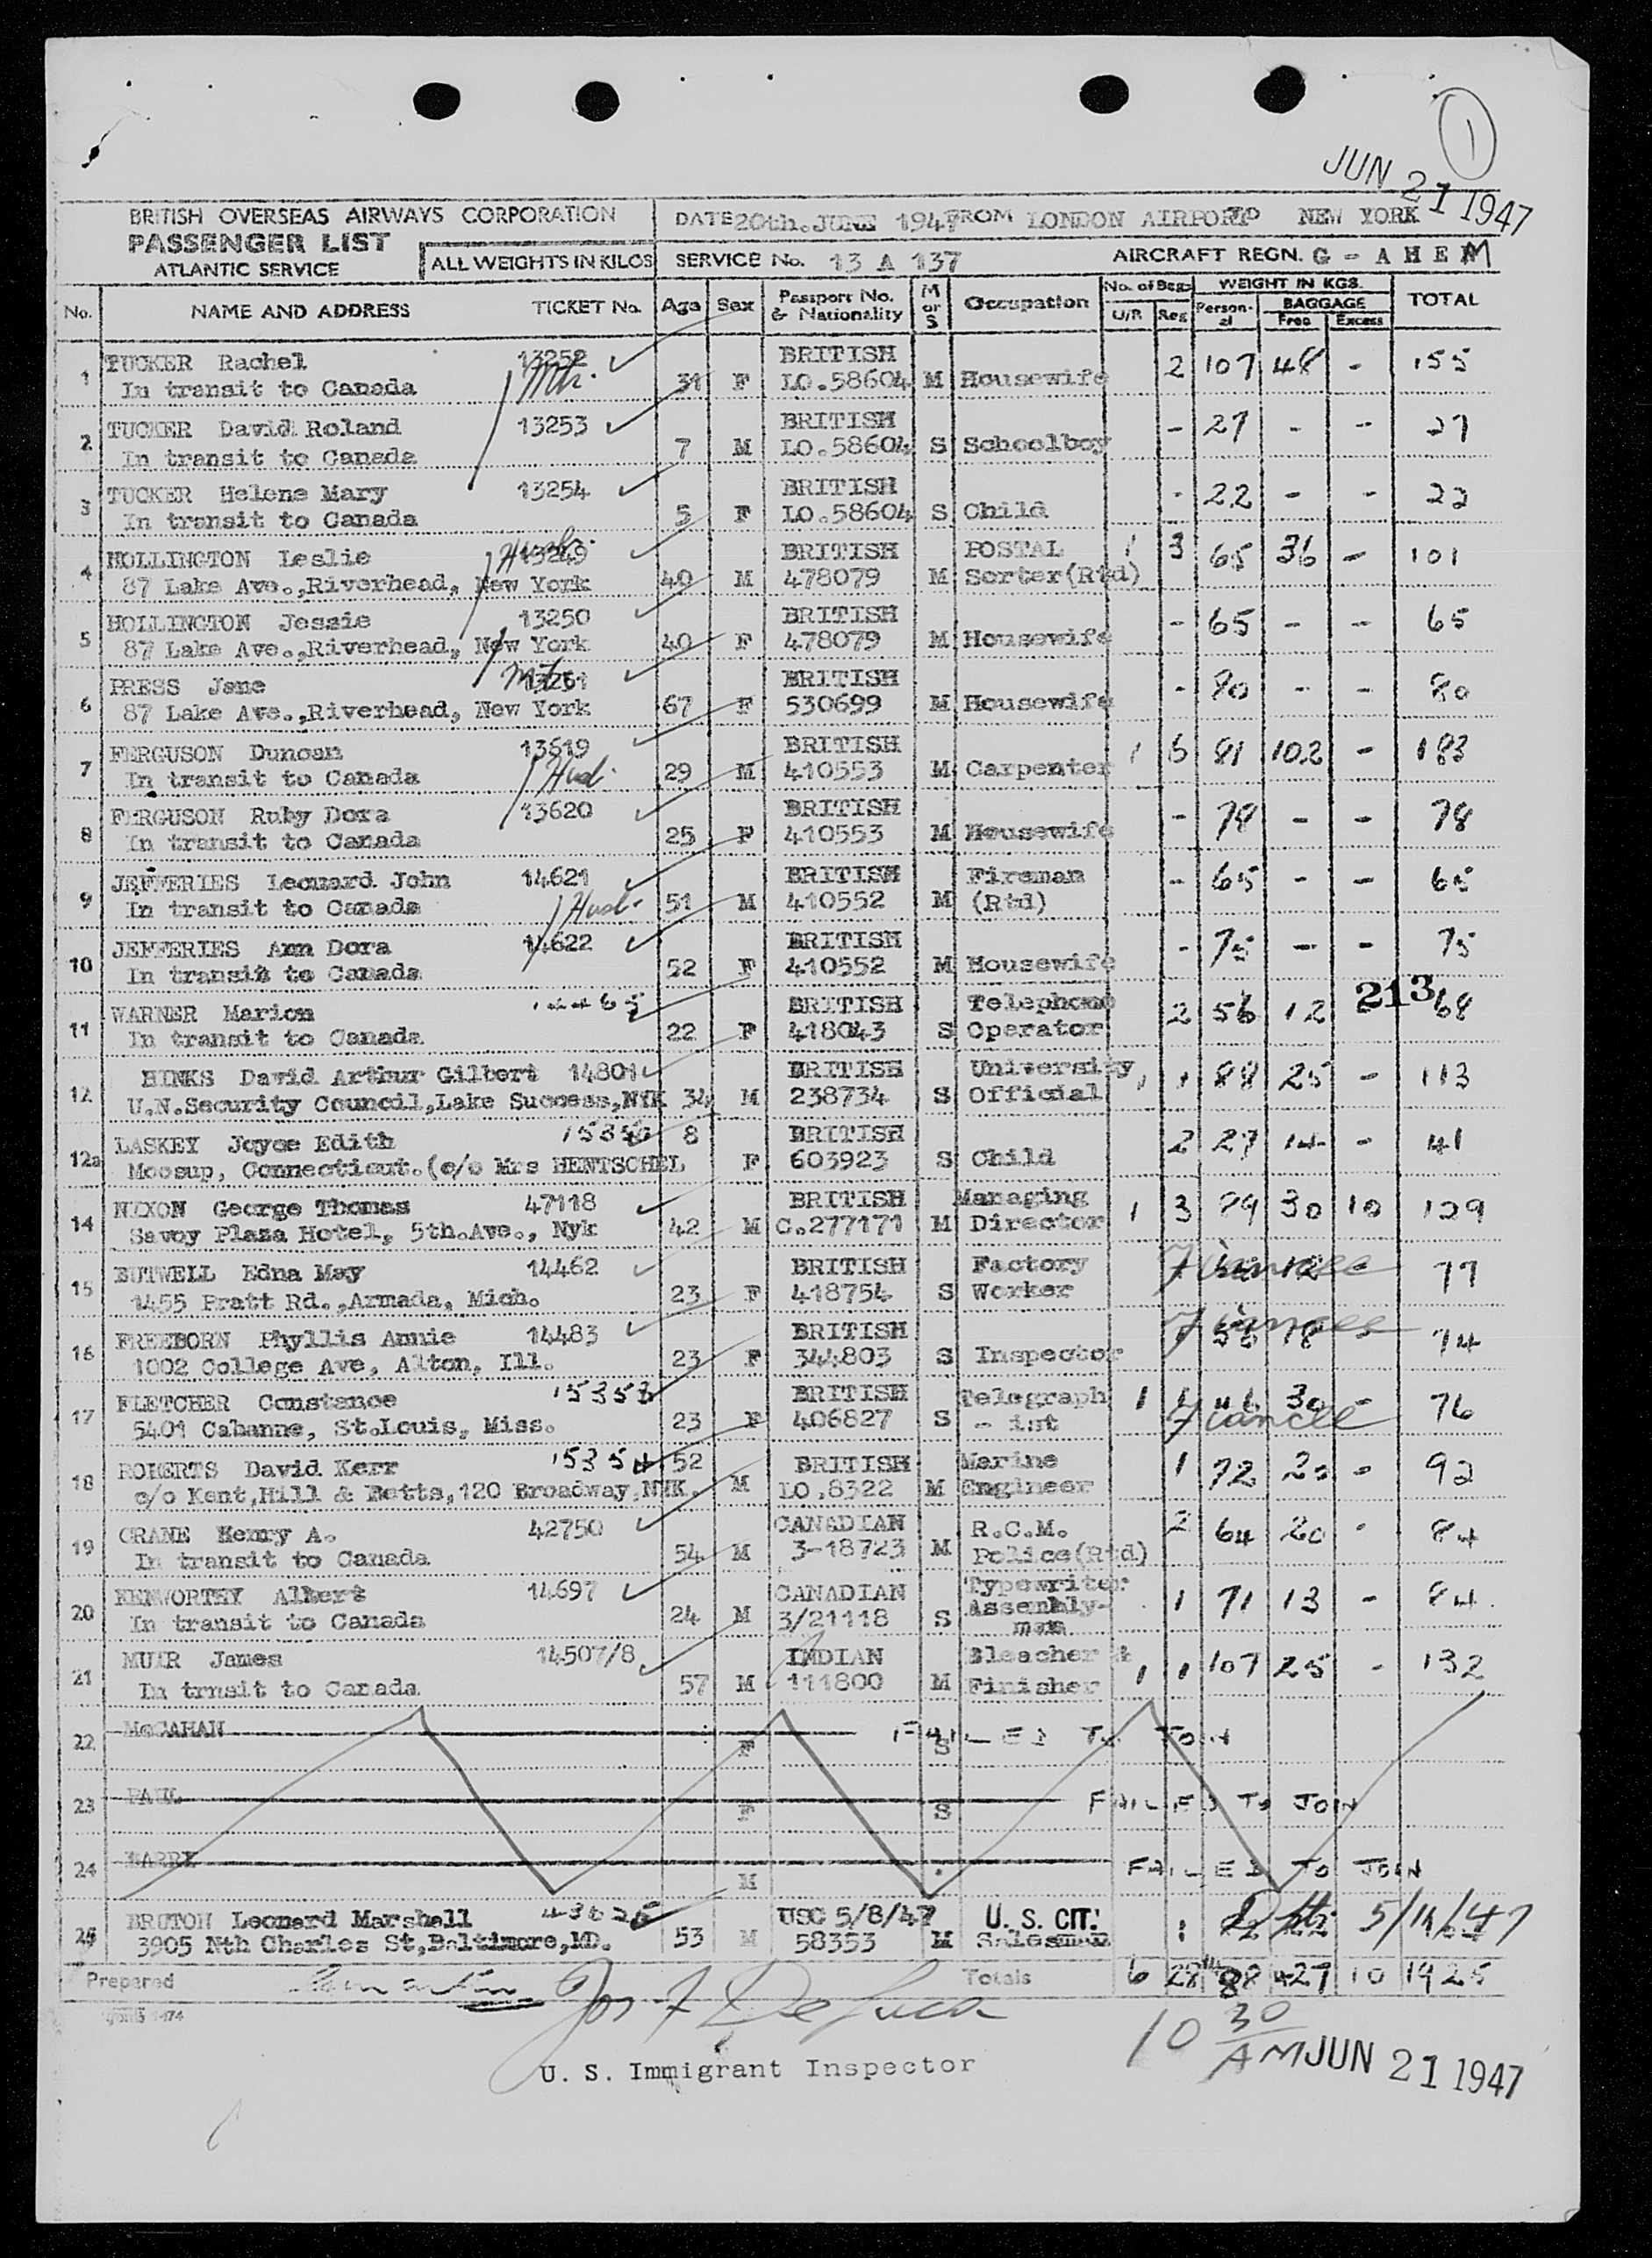 1
JUN 21 1947
BRITISH OVERSEAS AIRWAYS CORPORATION
PASSENGER LIST
ATLANTIC SERVICE
ALL WEIGHTS IN KILOS
DATE 20th. JUNE 1947 FROM LONDON AIRPORT TO NEW YORK
SERVICE No. 13 A 137 AIRCRAFT REGN. G - A H E M
No. NAME AND ADDRESS TICKET No. Age Sex Passport No. & Nationality M or S Occupation No. of Bags U/R Reg WEIGHT IN KGS. Personal BAGGAGE Free Excess TOTAL
1 TUCKER Rachel 13252 BRITISH 2 107 48 - 155
In transit to Canada 31 F LO.58604 M Housewife
2 TUCKER David Roland 13253 BRITISH - 27 - - 27
In transit to Canada 7 M LO.58604 S Schoolboy
3 TUCKER Helene Mary 13254 BRITISH - 22 - - 22
In transit to Canada 5 F LO.58604 S Child
4 HOLLINGTON Leslie 13249 BRITISH POSTAL 1 3 65 36 - 101
87 Lake Ave.,Riverhead, New York 40 M 478079 M Sorter(Rtd)
5 HOLLINGTON Jessie 13250 BRITISH - 65 - - 65
87 Lake Ave.,Riverhead, New York 40 F 478079 M Housewife
6 PRESS Jane 13251 BRITISH - 80 - - 80
87 Lake Ave.,Riverhead, New York 67 F 530699 M Housewife
7 FERGUSON Duncan 13619 BRITISH 1 5 81 102 - 183
In transit to Canada 29 M 410553 M Carpenter
8 FERGUSON Ruby Dora 13620 BRITISH - 78 - - 78
In transit to Canada 25 F 410553 M Housewife
9 JEFFERIES Leonard John 14621 BRITISH Fireman - 65 - - 65
In transit to Canada 51 M 410552 M (Rtd)
10 JEFFERIES Ann Dora 14622 BRITISH - 75 - - 75
In transit to Canada 52 F 410552 M Housewife
213
11 WARNER Marion 14465 BRITISH Telephone 2 56 12 68
In transit to Canada 22 F 418043 S Operator
12 HINKS David Arthur Gilbert 14801 BRITISH University 1 1 88 25 - 113
U.N.Security Council,Lake Success,NYK 34 M 238734 S Official
12a LASKEY Joyce Edith 8 BRITISH 2 27 14 - 41
Moosup, Connecticut.(c/o Mrs HENTSCHEL F 603923 S Child
14 NIXON George Thomas 47118 BRITISH Managing 1 3 89 30 10 129
Savoy Plaza Hotel, 5th.Ave., Nyk 42 M C.277171 M Director
15 BUTWELL Edna May 14462 BRITISH Factory Fiancee 77
1455 Pratt Rd.,Armada, Mich. 23 F 418754 S Worker
16 FREEBORN Phyllis Annie 14483 BRITISH Fiancee 56 18 - 74
1002 College Ave, Alton, Ill. 23 F 344803 S Inspector
17 FLETCHER Constance 15353 BRITISH Telegraph 1 46 30 - 76
5401 Cabanne, St.Louis, Miss. 23 F 406827 S - ist Fiancee
18 ROBERTS David Kerr 15354 52 BRITISH Marine 1 72 20 - 92
c/o Kent,Hill & Betts,120 Broadway,NYK. M LO.8322 M Engineer
19 CRANE Henry A. 42750 CANADIAN R.C.M. 2 64 20 - 84
In transit to Canada 54 M 3-18723 M Police(Rtd)
20 KENWORTHY Albert 14697 CANADIAN Typewriter 1 71 13 - 84
In transit to Canada 24 M 3/21118 S Assembly-
man
21 MUIR James 14507/8 INDIAN Bleacher & 1 1 107 25 - 132
In trnsit to Canada 57 M 111800 M Finisher
22 McCAHAN F S FAILED TO JOIN
23 PAUL F S FAILED TO JOIN
24 BARRE M FAILED TO JOIN
25 BRUTON Leonard Marshall 43626 USC 5/8/47 U. S. CIT. 1
3905 Nth Charles St,Baltimore,MD. 53 M 58353 M Salesman
Prepared Totals 6 28 1488 427 10 1925
Jos F DeLuca
U. S. Immigrant Inspector
10 30 AM JUN 21 1947